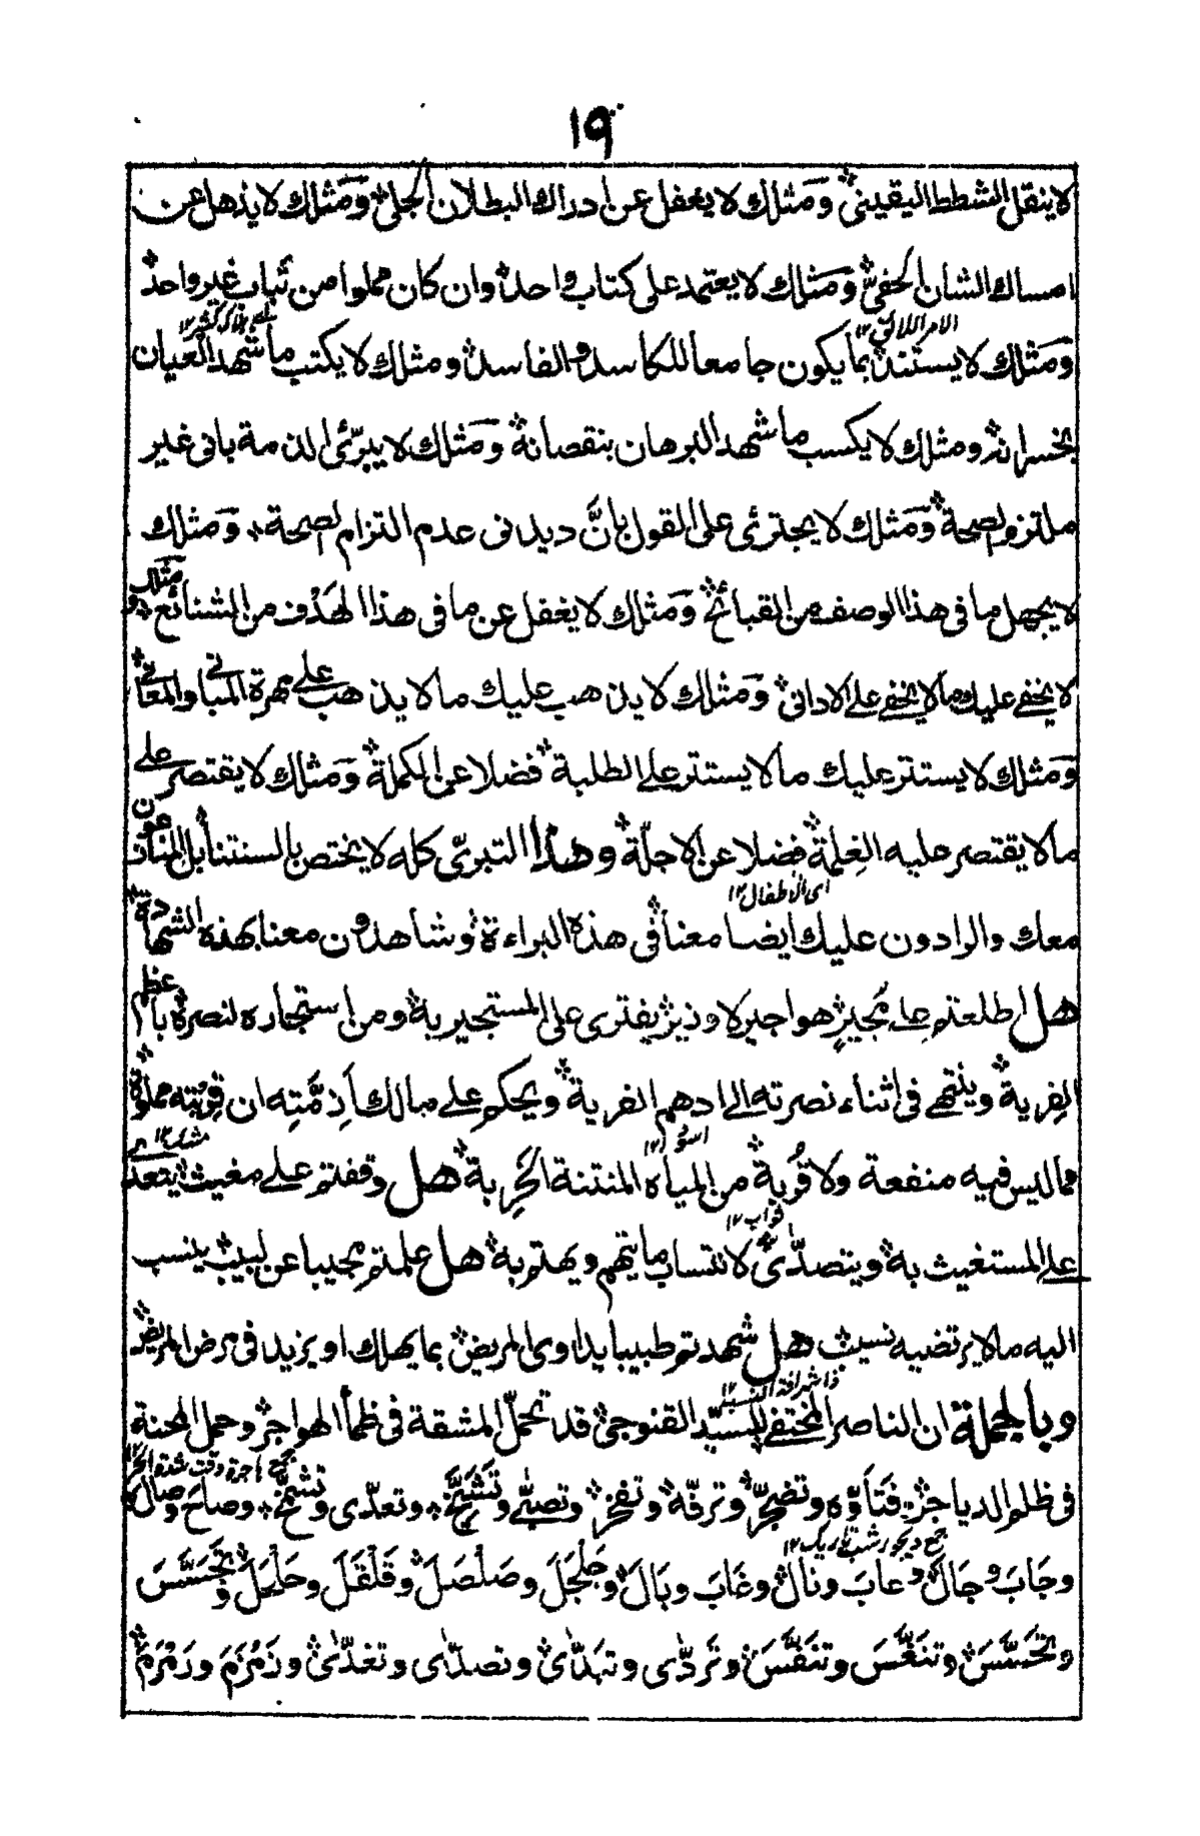 ١٩
لا ينقل الشطط اليقينى ومثلك لا يغفل عن ادراك البطلان الجلى ومثلك لا يذهل عن
امساك الشان الخفى ومثلك لا يعتمد على كتاب واحد وان كان مملوا من غير واحد
الامر اللائق ١٢
ومثلك لا يستند بما يكون جامعا للكاسد والفاسد ومثلك لا يكتب ما شهد العيان
بخسرانه ومثلك لا يكسب ما شهد البرهان بنقصانه ومثلك لا يبرئ الذمة بانى غير
ملتزم لصحة ومثلك لا يجترئ على القول بانَّ ديدنى عدم التزام لصحة ومثلك
لا يجهل ما فى هذا الوصف من القبائح ومثلك لا يغفل عن ما فى هذا الهذف من الشنائع ومثلك
لا يخفے عليك ما لا يخفے علے الادانى ومثلك لا يذهب عليك ما لا يذهب علے مهرة المبانى والمعانى
ومثلك لا يستتر عليك ما لا يستتر علے الطلبة فضلا عن الكملة ومثلك لا يقتصر علے
ما لا يقتصر عليه الغِلمة فضلا عن الاجلّة وهذا التبرّى كله لا يختص بالسنتنا بل
اى الاطفال ١٢
معك والرادون عليك ايضا معنا فى هذه البراءة وشاهدون معنا بهذه الشهادة
هل اطلعتم على مجيرٍ هو اجير لا وزير يفترى على المستجير به ومن استجاره لنصرة باعظم
الفرية وينتهے فى اثناء نصرته الے ادهم الفرية ويحكم علے مالك اَزِمّتِه ان قربته مملوة
مما ليس فيه منفعة ولا قُربة من المياه المنتنة الخَرِبة هل وقفتم علے مغيث يتعدى
ثواب ١٢
علے المستغيث به ويتصدّى لانتساب ما يتهم ويهتم به هل علمتم مجيبا عن لبيب ينسب
اليه ما لا يرتضيه نسيب هل شهدتم طبيبا يداوى المريض بما يهلك او يزيد فى مرض المريض
وبالجملة ان الناصر المختفے للسيّد القنوجى قد تحمّل المشقة فى ظمأ الهواجر وحمل المحنة
فى ظلم الدياجر فتأوّه وتضجّر وترفّه وتفخر وتصبّے وتَشَيَّخَ وتعدّى وصاحَ وصالَ
جمع ديجور شب تاريك ١٢
وجَابَ وجَالَ وعابَ ونالَ وغَابَ وبَالَ وجَلْجَلَ وصَلْصَلَ وقَلْقَلَ وحَلْحَلَ وتَجَسَّسَ
وتَحَسَّسَ وتَنَغَّسَ وتنَفَّسَ وتَردّى وتهدّى وتصدّى وتغدّى وزَمْزَمَ ورَمْرَمَ